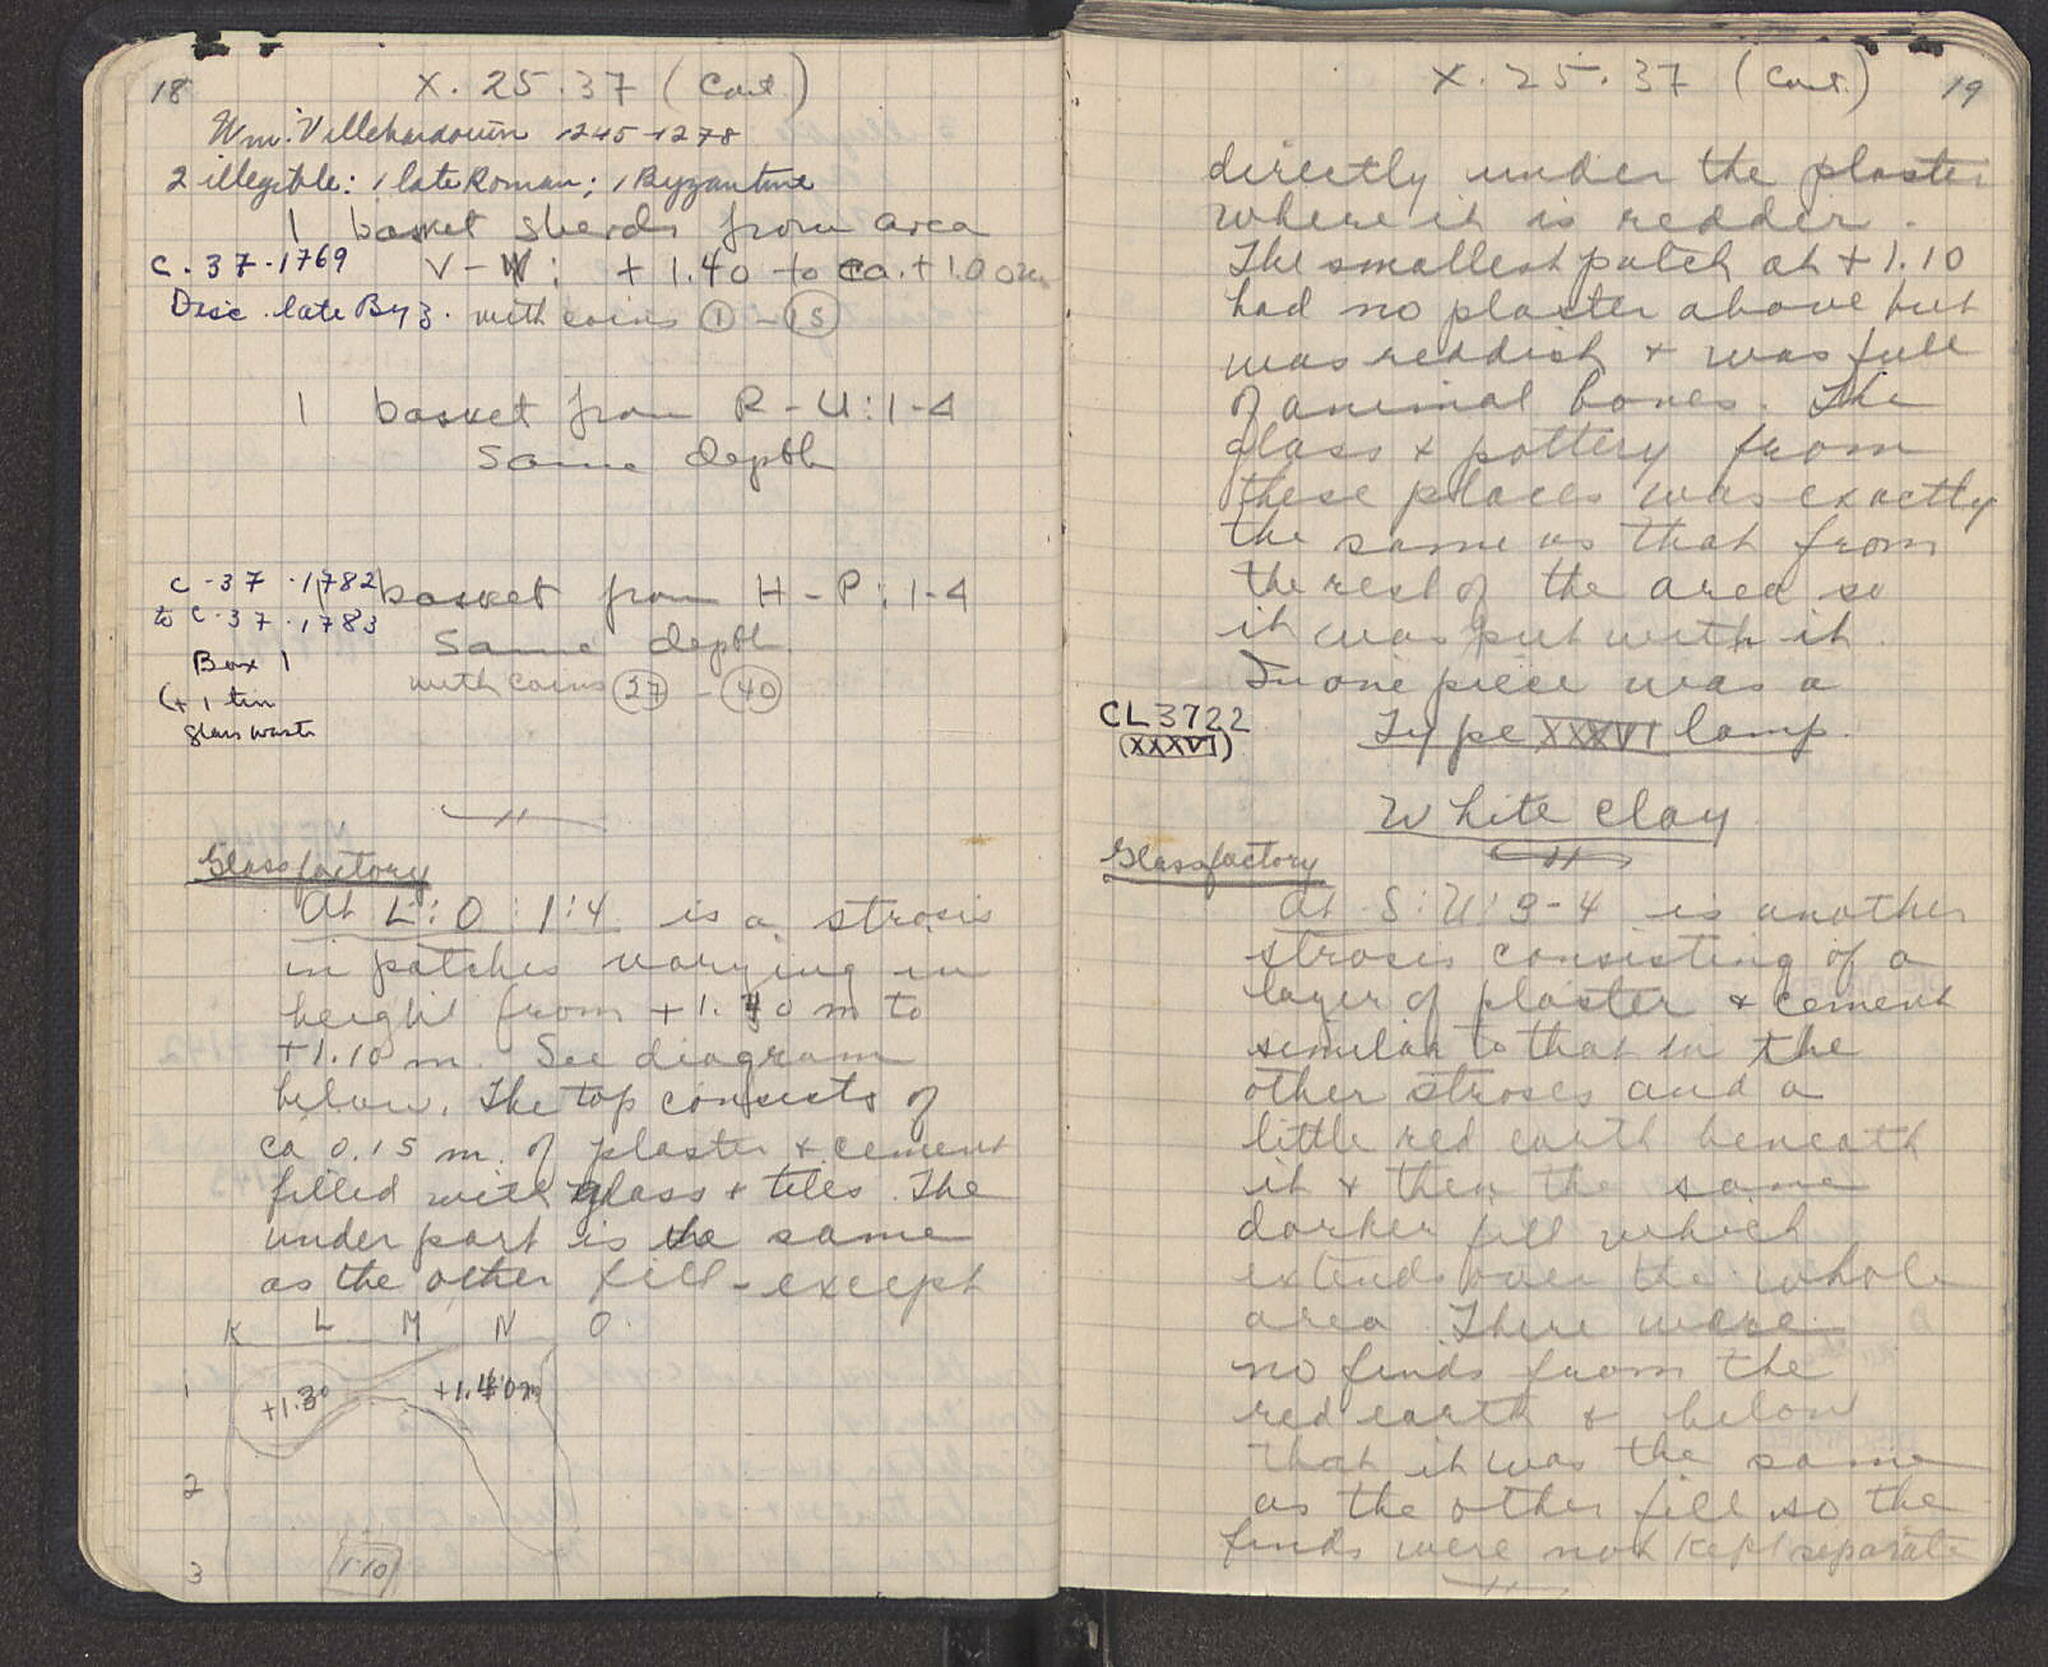 18
X. 25. 37 (Cont.)
Wm. Villehardouin 1245-1278
2 illegible: 1 late Roman; 1 Byzantine
1 basket sherds from area
C. 37. 1769 V - W: +1.40 to ca. +1.00m
Disc. late Byz. with coins 1 - 15
1 basket from R - U: 1-4
Same depth
C-37-1782 1 basket from H - P: 1-4
to C-37-1783 Same depth
Box 1
with coins 27 - 40
(+ 1 tin
glass waste
Glass factory
At L: O: 1:4 is a strosis
in patches varying in
height from +1.40 m to
+1.10 m. See diagram
below. The top consists of
ca 0.15 m. of plaster + cement
filled with glass + tiles. The
under part is the same
as the other fill - except
K L M N O.
1 +1.30 +1.40m
2
3 1.10
X. 25. 37 (Cont.) 19
directly under the plaster
where it is redder.
The smallest patch at +1.10
had no plaster above but
was reddish + was full
of animal bones. The
glass + pottery from
these places was exactly
the same as that from
the rest of the area so
it was put with it.
In one piece was a
CL3722 Type XXXVI lamp.
(XXXVI)
White clay
Glass factory
At S: U: 3-4 is another
strosis consisting of a
layer of plaster + cement
similar to that in the
other stroses and a
little red earth beneath
it + then the same
darker fill which
extends over the whole
area. There were
no finds from the
red earth + below
that it was the same
as the other fill so the
finds were not kept separate